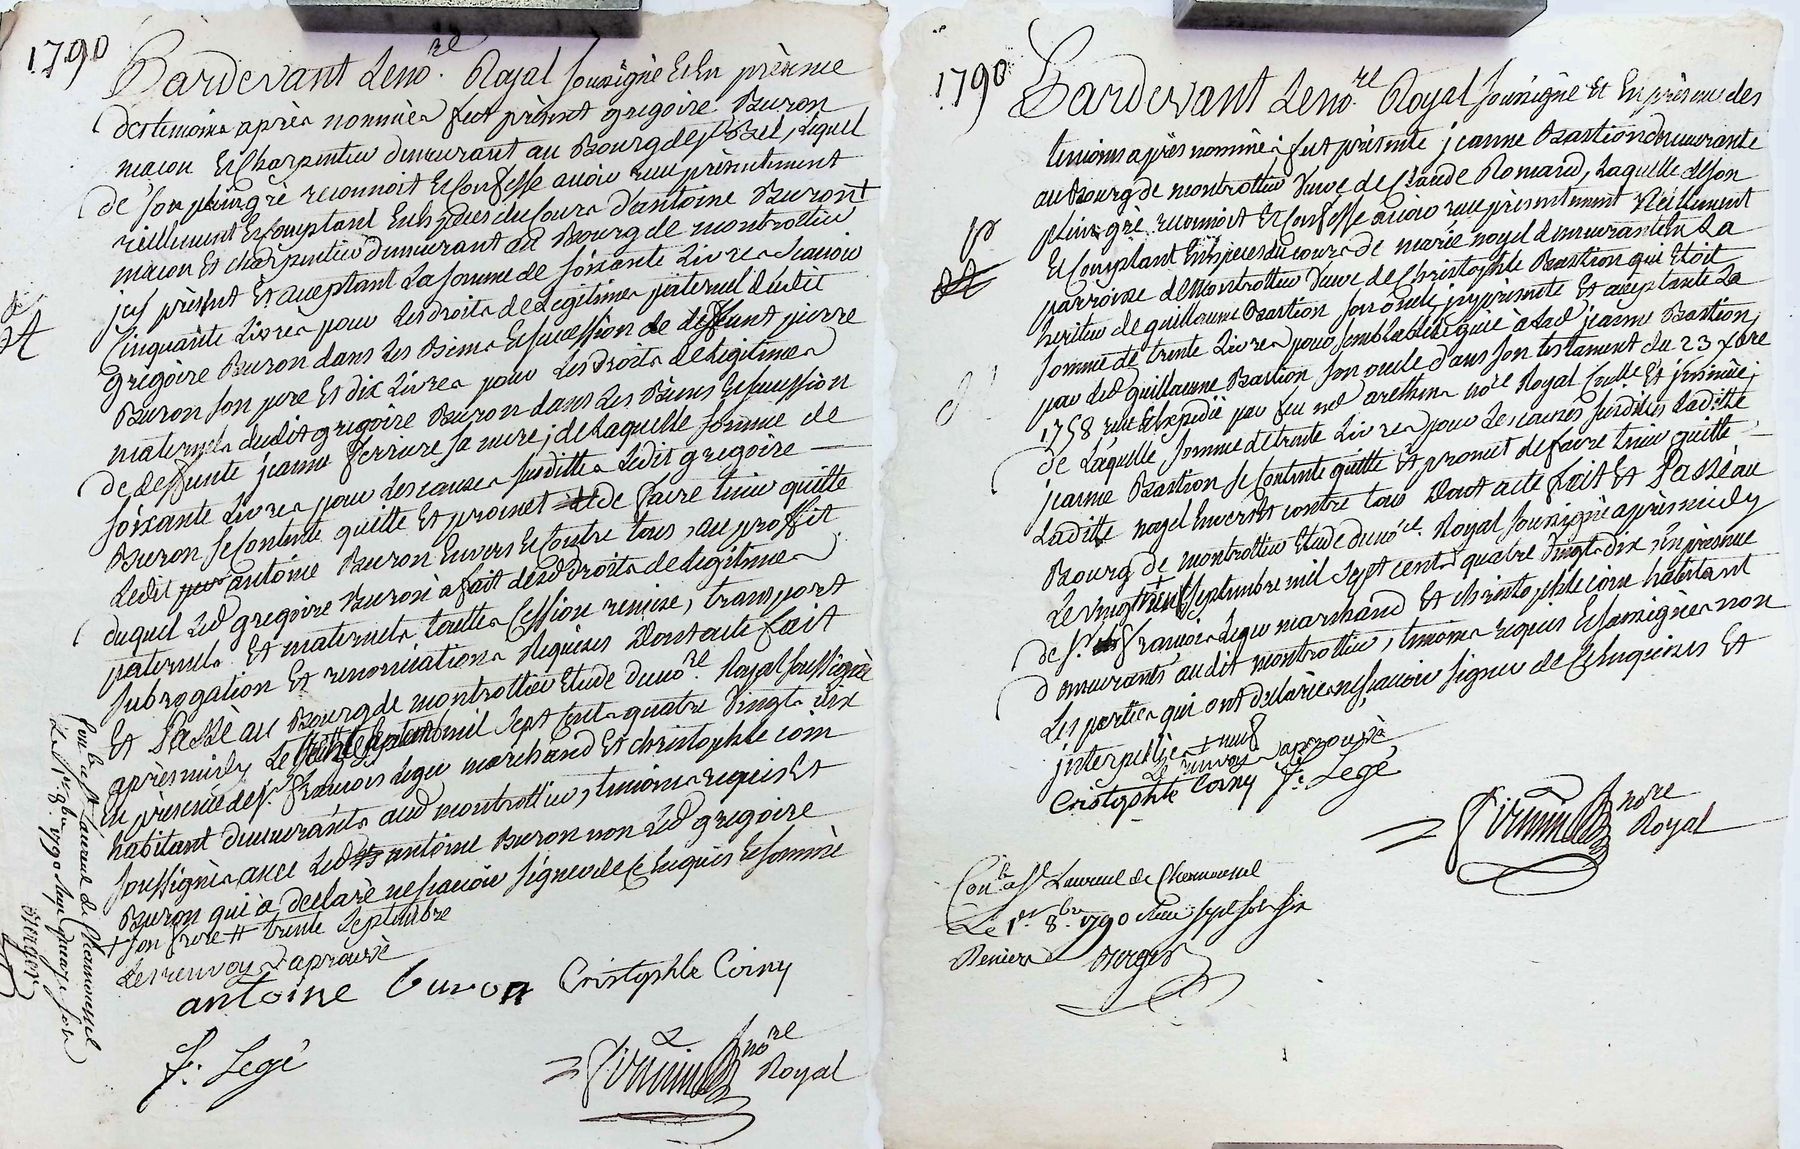 1790
Pardevant Le no.re Royal soussigné Et En prèsence
des temoins après nommés fut prèsent gregoire Buron
macon Et Charpentier demeurant au Bourg de St Bel, Lequel
de son plein gré reconnoit Et Confesse avoir reçu prèsentement
rèellement Et Comptant En Espèces du Cours d'antoine Buron +
macon Et charpentier demeurant au Bourg de montrottier
jcy prèsent Et acceptant La somme de soixante Livres Scavoir
Cinquante Livres pour Les droits de Legitimes paternel dudit
gregoire Buron dans Les Biens Et succession de deffunt pierre
Buron son pere Et dix Livres pour Les droits de Legitimes
maternels dudit gregoire Buron dans Les Biens Et succession
de deffunte jeanne ferriere sa mere; de Laquelle somme de
soixante Livres pour Les causes susdittes Ledit gregoire
Buron se Contente quitte Et promet de faire tenir quitte
Ledit antoine Buron Envers Et Contre tous, au proffit
duquel Led gregoire Buron à fait desd droits de Legitimes
paternels Et maternels touttes Cession remise, transport
subrogation Et renonciations Requises Dont acte fait
Et Passé au Bourg de montrottier Etude du no.re Royal soussigné
après midy Le mil sept cents quatre vingts dix
En prèsence de sr. françois Legé marchand Et christophle coin
habitant demeurants aud montrottier, temoins requis Et
soussignés avec Led antoine Buron non Led gregoire
Buron qui a declaré ne scavoir signer de Ce Enquis Et sommé
+ son frere # trente septembre
Les renvoys aprouvé
antoine buron Cristophle Coiny
f. Legé
no.re
Royal
Con.lé a St Laurent de Chamousset
Le 1er 8.bre 1790 Reçu quinze sols
Berger
1790
Pardevant Le no.re Royal soussigné Et En prèsence des
temoins après nommés, fut prèsente jeanne Bastion demeurante
au Bourg de montrottier Veuve de Claude Romand, Laquelle de son
plein gré reconnoit Et Confesse avoir reçu prèsentement rèellement
Et Comptant En Espèces du cours de marie noyel demeurante En La
parroisse de montrottier Veuve de Christophle Bastion qui Etoit
heritier de guillaume Bastion son oncle jcy prèsente Et acceptante La
somme de trente Livres pour semblable Leguée à Lad jeanne Bastion
par led guillaume Bastion son oncle dans son testament du 23 xbre
1758 reçu Et Expedié par feu no.re Royal
de Laquelle somme de trente Livres pour Les causes susdittes Laditte
jeanne Bastion se Contente quitte Et promet de faire tenir quitte
Laditte noyel Envers Et contre tous Dont acte fait Et Passé au
Bourg de montrottier Etude du no.re Royal soussigné après midy
Le vingt neuf septembre mil sept cents quatre vingts dix, En prèsence
de sr. françois Legé marchand Et christophle coin habitant
demeurants audit montrottier, temoins requis Et soussignés non
Les parties qui ont declarées ne scavoir signer de Ce Enquises Et
jnterpellées + neuf
Le renvoy aprouvé
Cristophle Coiny f. Legé
no.re
Royal
Con.lé a St Laurent de Chamousset
Le 1.er 8.bre 1790 Reçu sept sols six
Deniers Berger